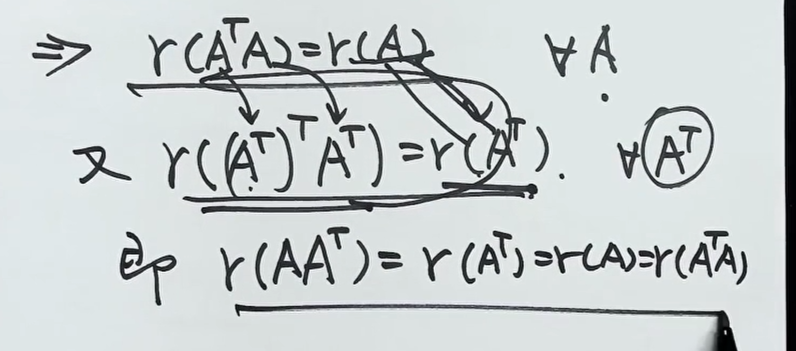 ⇒ r(AᵀA)=r(A) ∀A
又 r((Aᵀ)ᵀAᵀ)=r(Aᵀ). ∀Aᵀ
即 r(AAᵀ)=r(Aᵀ)=r(A)=r(AᵀA)